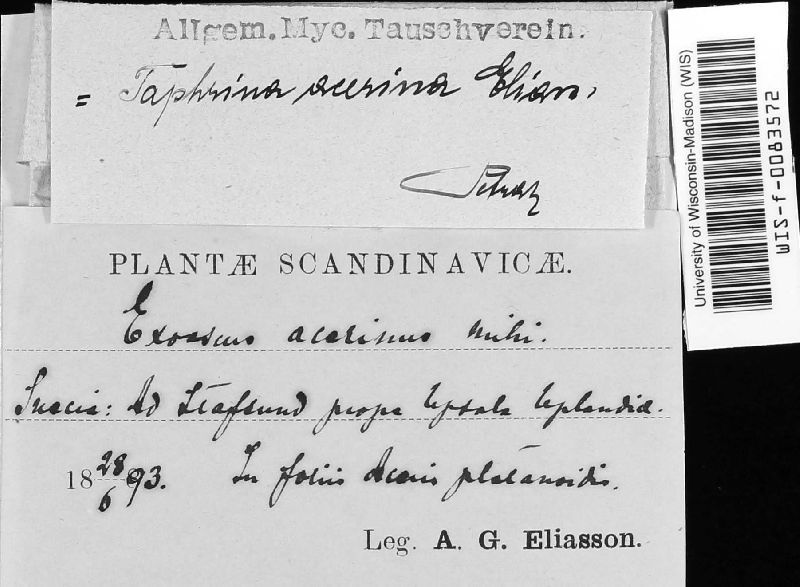 Allgem. Myc. Tauschverein.
= Taphrina acerina Elian.
Petrak
PLANTÆ SCANDINAVICÆ.
Exoascus acerinus mihi.
Suecia: Ad Stafsund prope Upsala Uplandiæ.
18 28/6 93. In foliis Aceris platanoidis.
Leg. A. G. Eliasson.
University of Wisconsin-Madison (WIS)
WIS-f-0083572